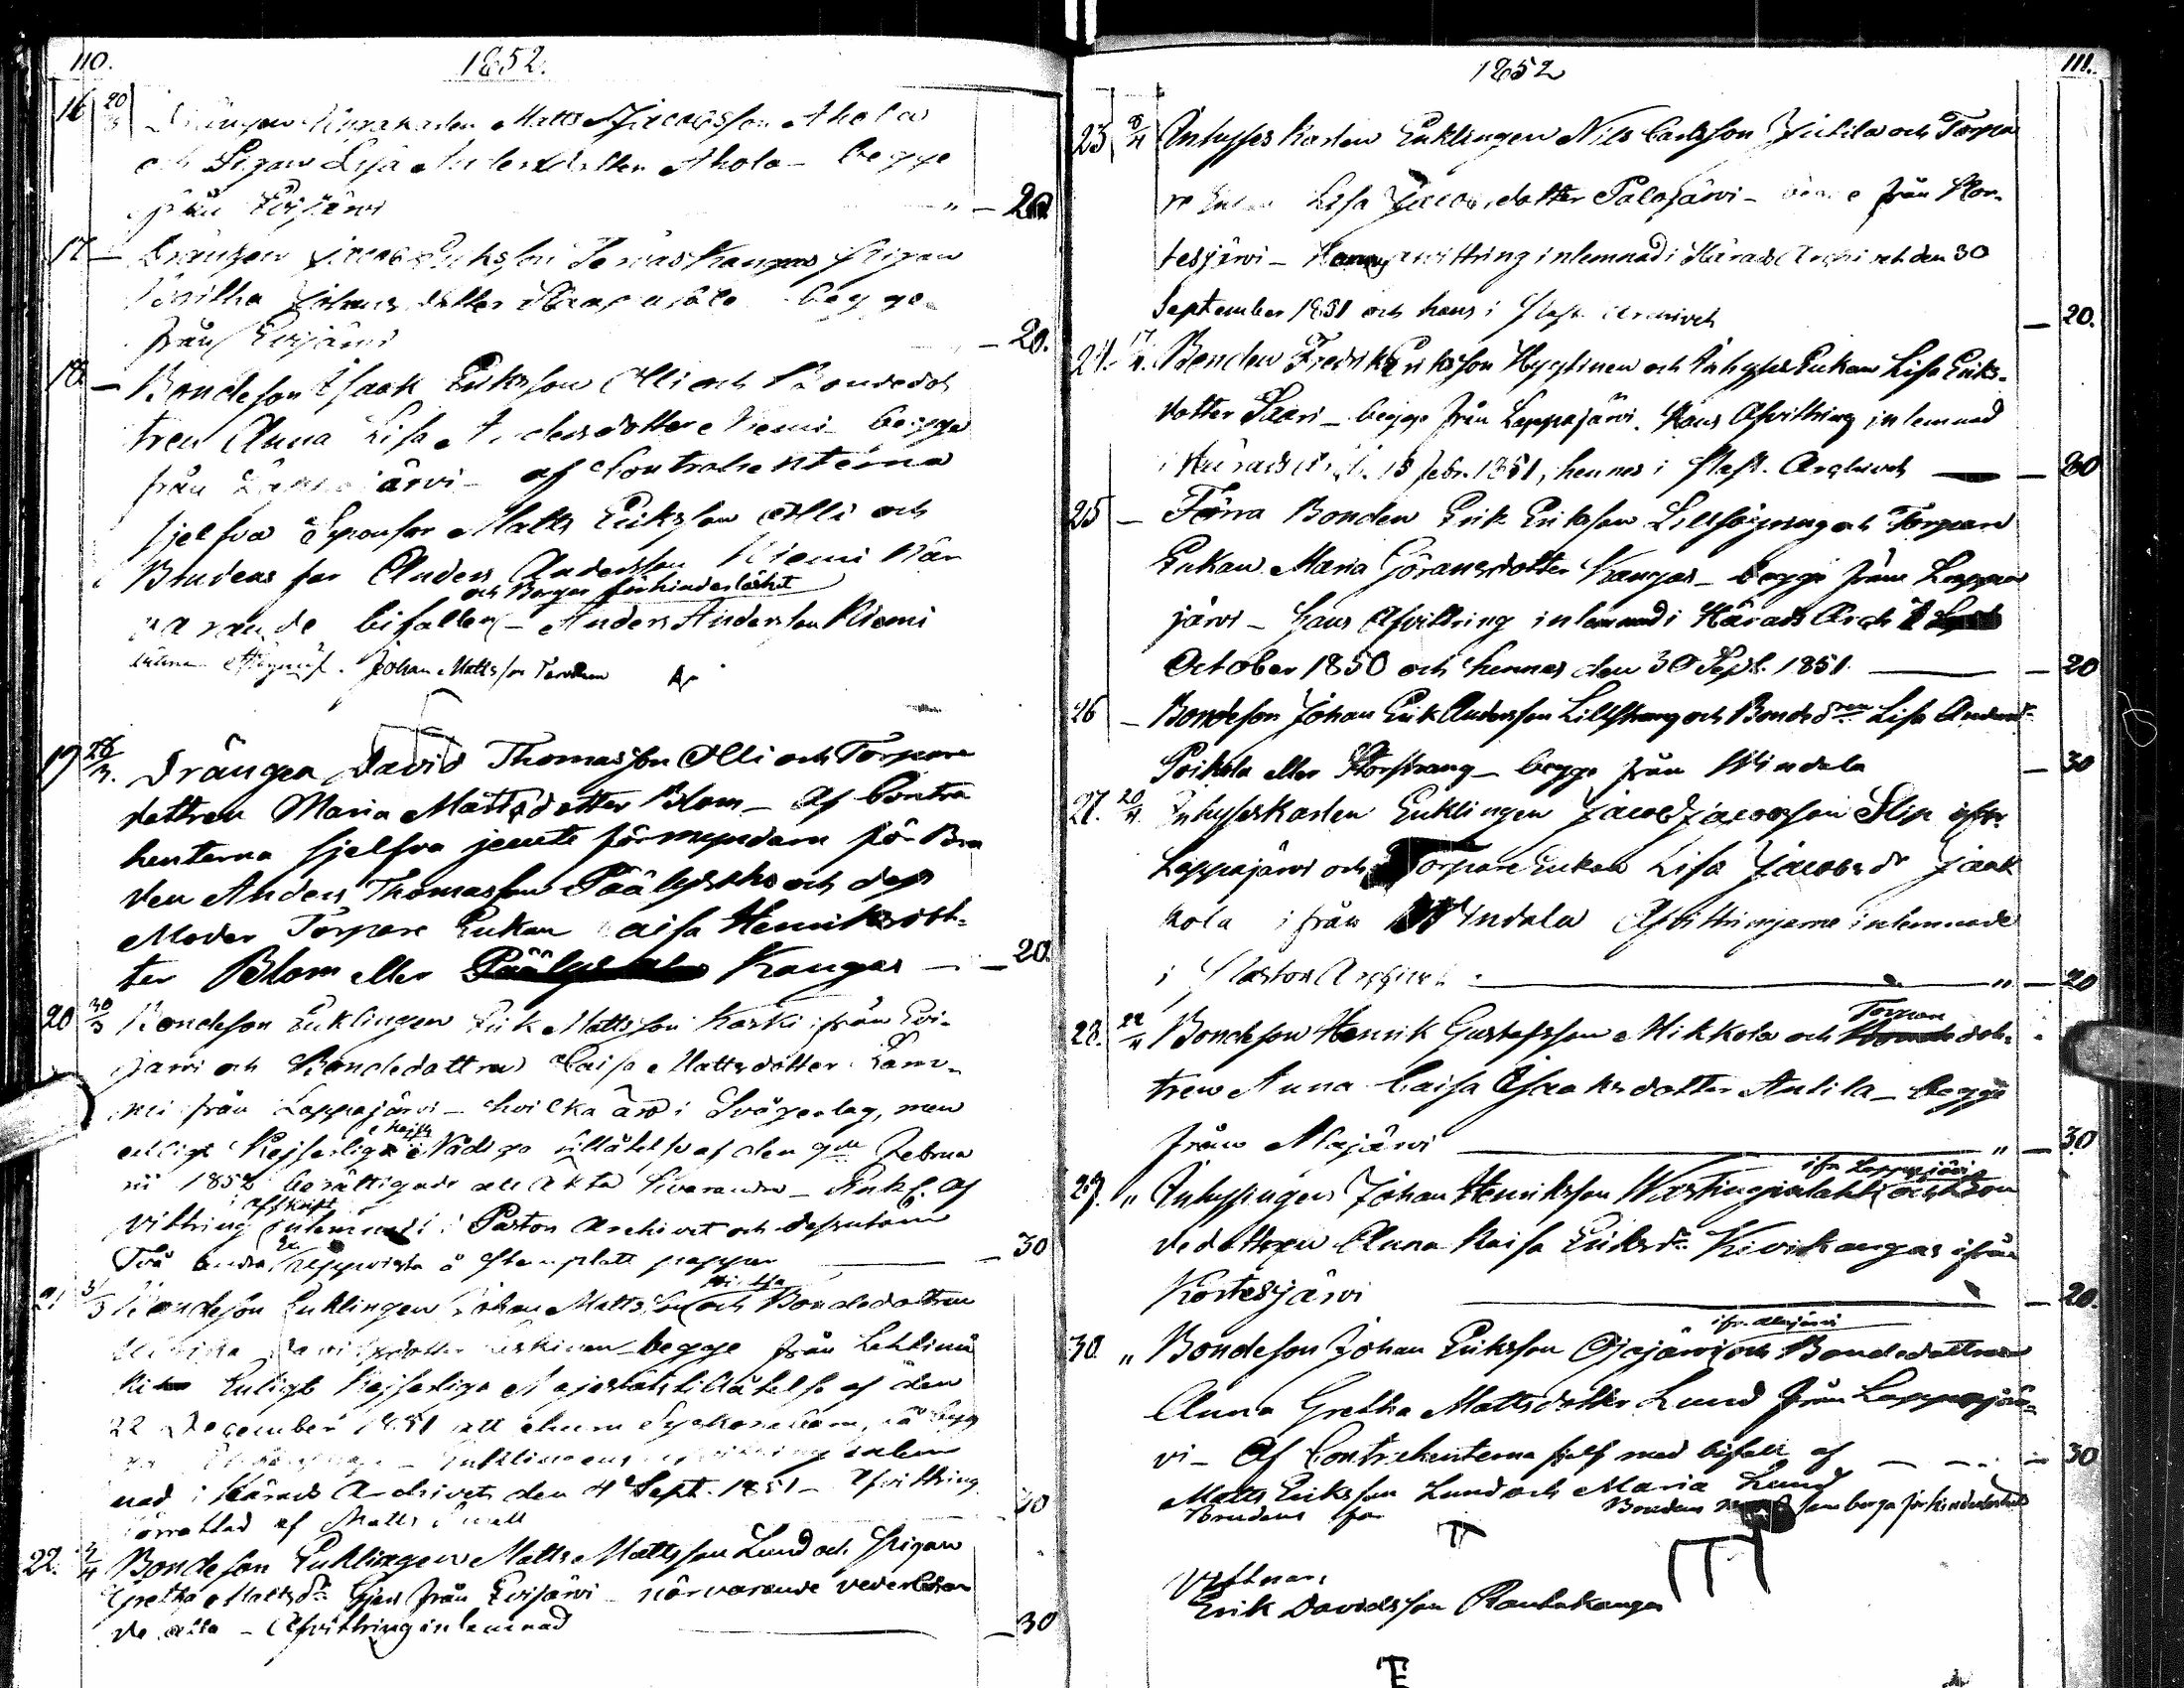 110.
1852.
16 20/3 Drängen Matts Jacobsson Ahola
och Pigan Lisa Andersdotter Ahola - begge
från Evijärvi " - 20
17 - Drängen Jacob Eriksson Kangas Pigan
Britha Johansdotter - begge
från Evijärvi - 20.
18 - Bondeson Isaak Eriksson Olli och Bondedot
tren Anna Lisa Andersdotter Niemi - begge
från Lappajärvi - af Contrahenterna
sjelfva Sponsor Matts Eriksson Olli och
Brudens far Anders Andersson Niemi när
och Borgar förhinderlöshet
varande bifaller - Anders Andersson Niemi
Johan Mattsson
19 28/3. Drängen David Thomasson Olli och Torpare
dottren Maria Mattsdotter Blom - Af Contra
henterna sjelfva jemte förmyndaren för Bru
den Anders Thomasson och dess
Moder Torpare Enkan Caisa Henriksdot-
ter Blom eller Kangas - - 20.
20 30/3 Bondeson Enklingen Erik Mattsson Koski ifrån Evi-
järvi och Bondedottren Caisa Mattsdotter Lam-
mi från Lappajärvi - hvilka äro i Svågerlag, men
Majts
enligt Kejserliga Nådiga tillåtelse af den 9de Februa
rii 1852 berättigade att äkta hvarandra - Enkl. Af
afskrift
vittring inlemnad i Pastors Archivet och dessutom
Två andra å stämplatt papper - 30
21 31/3 Bondeson Enklingen Johan Mattsson och Bondedottren
Davidsdotter - begge från Lehtimä
ki Enligt Kejserliga Majestäts tillåtelse af den
22 December 1851 att ehuru Syskonabarn, få ingå
Enklingens afvittring inlem
nad i Härads Archivet den 4 Sept. 1851 - Afvittring
förrättad af Matts 30
22. 4/4 Bondeson Enklingen Matts Mattsson Lund och Pigan
Gretha Mattsdr från Evijärvi - närvarande vederböran
de alla - Afvittring inlemnad - 30
1852
111.
23 8/4 Inhyses Karlen Enklingen Nils Carlsson Jutila och Torpa
re Enkan Lisa Jacobsdotter Palojärvi - begge från Kor-
tesjärvi - Hennes afvittring inlemnad i Härads Archivet den 30
September 1851 och hans i Past. Archivet - 20.
24. 17/4. Bonden Fredrik Eriksson Hyytinen och Inhyses Enkan Lisa Eriks-
dotter Saari - begge från Lappajärvi. Hans Afvittring inlemnad
i Härads Arch. 18 Febr. 1851, hennes i Past. Archivet - 20
25 - Förra Bonden Erik Eriksson och Torpare
Enkan Maria Göransdotter Kangas - begge från Lappa
järvi - hans Afvittring inlemnad i Härads Arch
October 1850 och hennes den 30 Sept. 1851. - 20
26 - Bondeson Johan Erik Andersson Lillstrang och Bondedren Lisa Andersdr
Poikela eller Storstrang - begge från Windala - 30
27. 20/4 Inhyseskarlen Enklingen Jacob Jacobsson Slip ifrån
Lappajärvi och Torpare Enkan Lisa Jacobsdr Jaak
kola ifrån Windala Afvittringarne inlemnade
i Pastors Archivet " - 20
Torpare
28. 22/4 Bondeson Henrik Gustafsson Mikkola och Bondedot-
tren Anna Caisa Isaaksdotter Antila - begge
från Alajärvi " - 30
ifr. Lappajärvi
29. " Inhysingen Johan Henriksson och Bon
dedottren Anna Kaisa Eriksdr Kivikangas ifrån
Kortesjärvi - 20.
ifr. Alajärvi
30. " Bondeson Johan Eriksson Ojajärvi och Bondedottren
Anna Gretha Mattsdotter Lund från Lappajär-
vi - Af Contrahenterna sjelf med bifall af - 30
Matts Eriksson Lund och Maria Lund
Brudens far Brudens mor som borga för hinderlöshet
Vittnar:
Erik Davidsson Rautakangas